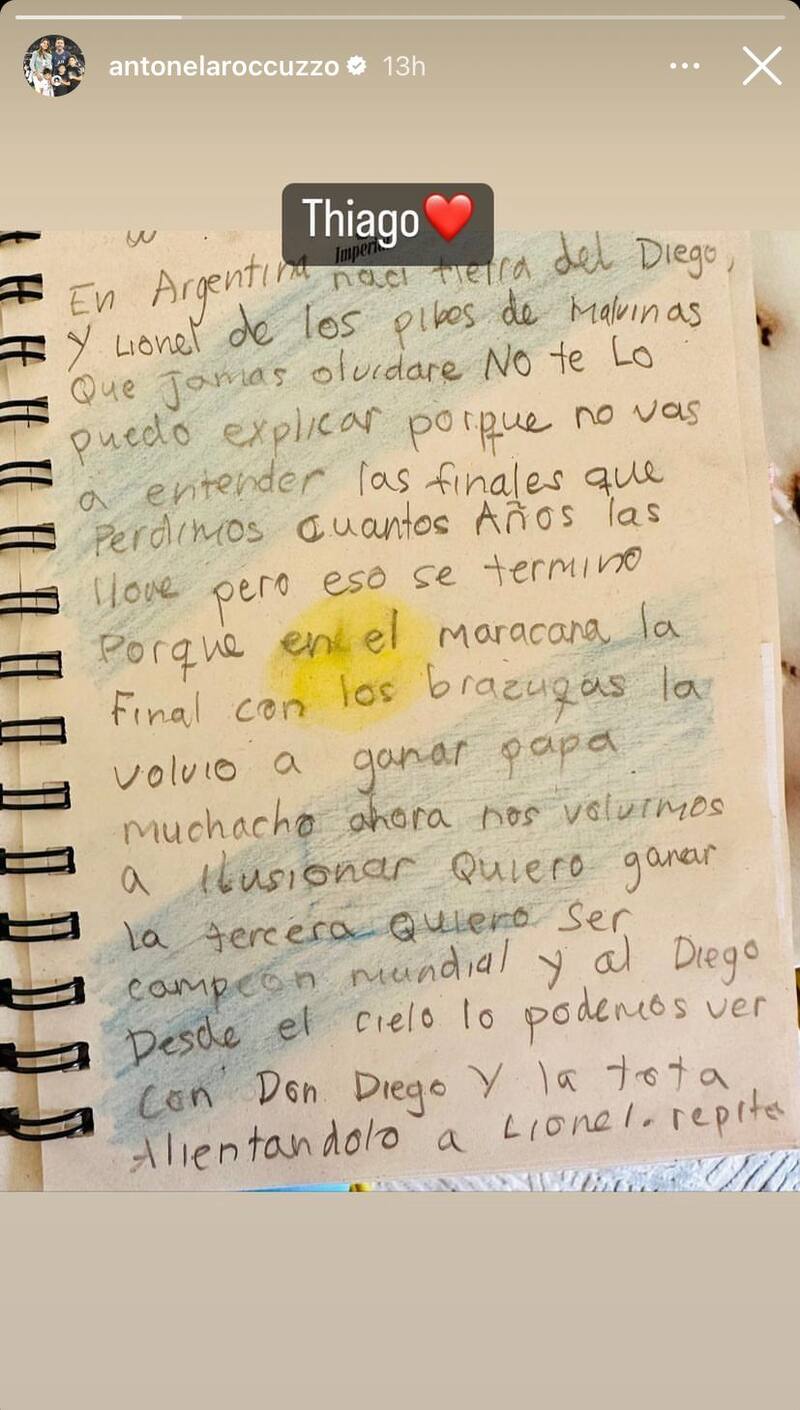 antonelaroccuzzo 13h
Thiago❤️
En Argentina naci tierra del Diego,
Y Lionel de los pibes de Malvinas
Que jamas olvidare NO te Lo
puedo explicar porque no vas
a entender las finales que
Perdimos cuantos Años las
llore pero eso se termino
Porque en el maracana la
Final con los brazugas la
volvio a ganar papa
muchacho ahora nos volvimos
a Ilusionar Quiero ganar
la tercera Quiero Ser
campeon mundial y al Diego
Desde el cielo lo podemos ver
Con Don Diego Y la tota
Alientandolo a Lionel. repite